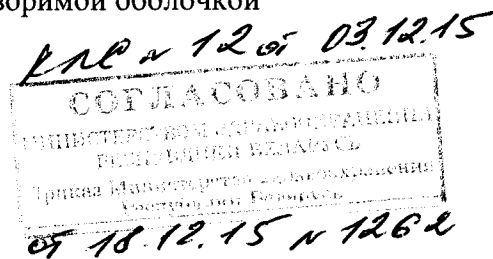 воримой оболочкой
КЛС № 12 от 03.12.15
СОГЛАСОВАНО
МИНИСТЕРСТВОМ ЗДРАВООХРАНЕНИЯ
РЕСПУБЛИКИ БЕЛАРУСЬ
Приказ Министерства здравоохранения
Республики Беларусь
от 18.12.15 № 1262